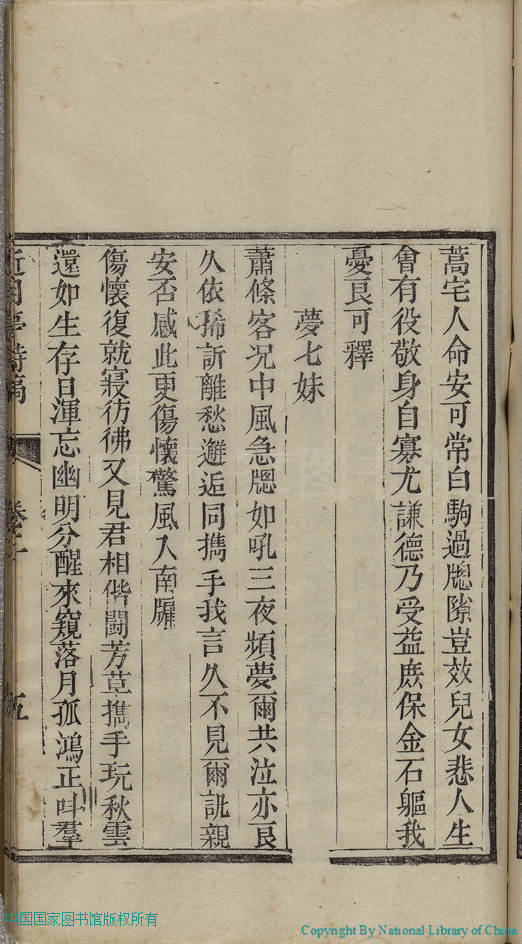 蒿宅人命安可常白駒過牕隙豈效兒女悲人生
會有役敬身自寡尤謙德乃受益庶保金石軀我
憂良可釋
夢七妹
蕭條客況中風急牕如吼三夜頻夢爾共泣亦良
久依稀訴離愁邂逅同攜手我言久不見爾訊親
安否感此更傷懷驚風入南牖
傷懷復就寢彷彿又見君相偕鬪芳草攜手玩秋雲
還如生存日渾忘幽明分醒來窺落月孤鴻正叫羣
詩稿
五
中国国家图书馆版权所有
Copyright By National Library of China